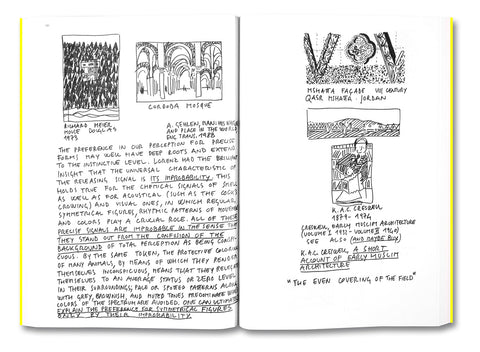 RICHARD MEIER
HOUSE DOUGLAS
1973
CORDOBA MOSQUE
A. GEHLEN, MAN: HIS NATURE
AND PLACE IN THE WORLD
ENG. TRANS. 1988
THE PREFERENCE IN OUR PERCEPTION FOR PRECISE
FORMS MAY WELL HAVE DEEP ROOTS AND EXTEND
TO THE INSTINCTIVE LEVEL. LORENZ HAD THE BRILLIANT
INSIGHT THAT THE UNIVERSAL CHARACTERISTIC OF
THE RELEASING SIGNAL IS ITS IMPROBABILITY. THIS
HOLDS TRUE FOR THE CHEMICAL SIGNALS OF SMELL
AS WELL AS FOR ACOUSTICAL (SUCH AS THE COCK'S
CROWING) AND VISUAL ONES, IN WHICH REGULAR,
SYMMETRICAL FIGURES, RHYTHMIC PATTERNS OF MOVEMENT
AND COLORS PLAY A CRUCIAL ROLE. ALL OF THESE
PRECISE SIGNALS ARE IMPROBABLE IN THE SENSE THAT
THEY STAND OUT FROM THE CONFUSION OF THE
BACKGROUND OF TOTAL PERCEPTION AS BEING CONSPI-
CUOUS. BY THE SAME TOKEN, THE PROTECTIVE COLORING
OF MANY ANIMALS, BY MEANS OF WHICH THEY RENDER
THEMSELVES INCONSPICUOUS, MEANS THAT THEY RELEGATE
THEMSELVES TO AN AVERAGE STATUS OR ZERO LEVEL
IN THEIR SURROUNDINGS; PALE OR SPOTTED PATTERNS ALONG
WITH GREY, BROWNISH, AND MUTED TONES PREDOMINATE. BRIGHT
COLORS OF THE SPECTRUM ARE AVOIDED. ONE CAN ULTIMATELY
EXPLAIN THE PREFERENCE FOR SYMMETRICAL FIGURES
ONLY BY THEIR IMPROBABILITY.
MSHATTA FAÇADE VIII CENTURY
QASR MSHATTA - JORDAN
K.A.C. CRESWELL
1879 - 1974
CRESWELL, EARLY MUSLIM ARCHITECTURE
(VOLUME I 1932 - VOLUME II 1940)
SEE ALSO (AND MAYBE BUY)
K.A.C. CRESWELL, A SHORT
ACCOUNT OF EARLY MUSLIM
ARCHITECTURE
"THE EVEN COVERING OF THE FIELD"